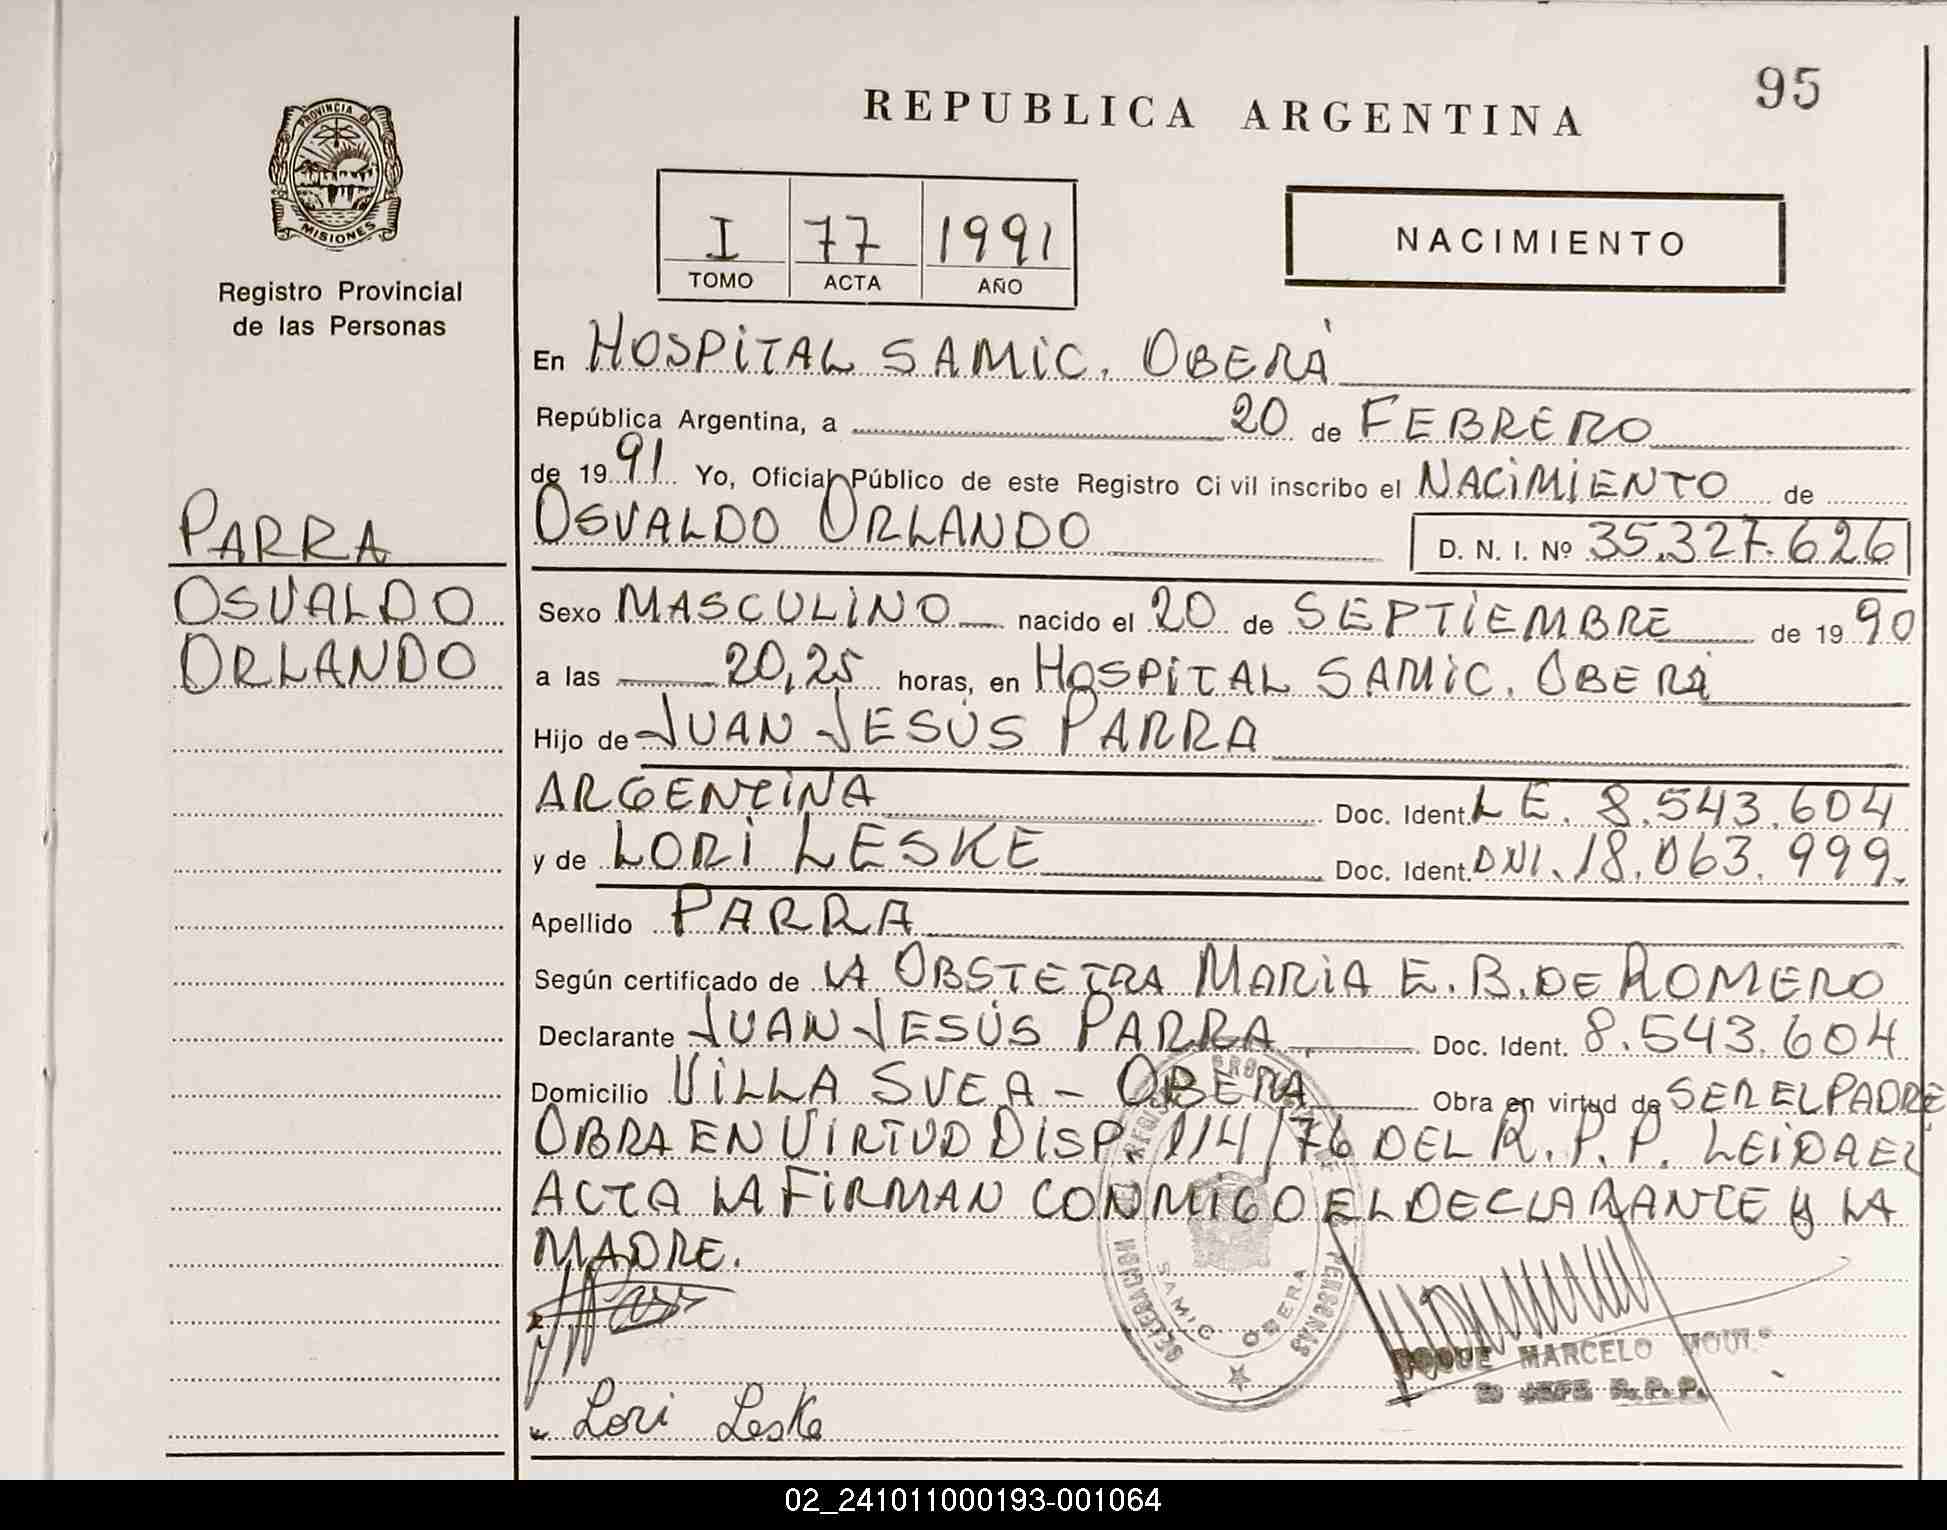 95
REPUBLICA ARGENTINA
PROVINCIA DE
MISIONES
Registro Provincial
de las Personas
I 77 1991
TOMO ACTA AÑO
NACIMIENTO
En HOSPITAL SAMIC. OBERÁ
República Argentina, a 20 de FEBRERO
de 1991 Yo, Oficial Público de este Registro Civil inscribo el NACIMIENTO de
OSVALDO ORLANDO D. N. I. Nº 35.327.626
PARRA
OSVALDO
ORLANDO
Sexo MASCULINO nacido el 20 de SEPTIEMBRE de 1990
a las 20,25 horas, en HOSPITAL SAMIC. OBERÁ
Hijo de JUAN JESÚS PARRA
ARGENTINA Doc. Ident. LE. 8.543.604
y de LORI LESKE Doc. Ident. DNI. 18.063.999.
Apellido PARRA
Según certificado de LA OBSTETRA MARIA E. B. DE ROMERO
Declarante JUAN JESÚS PARRA Doc. Ident. 8.543.604
Domicilio VILLA SVEA - OBERA Obra en virtud de SER EL PADRE
OBRA EN VIRTUD DISP. 114/76 DEL R. P. P. LEIDA EL
ACTA LA FIRMAN CONMIGO EL DECLARANTE Y LA
MADRE.
SAMIC OBERA
PERSONAS
MARCELO
JEFE R. P. P.
Lori Leske
02_241011000193-001064